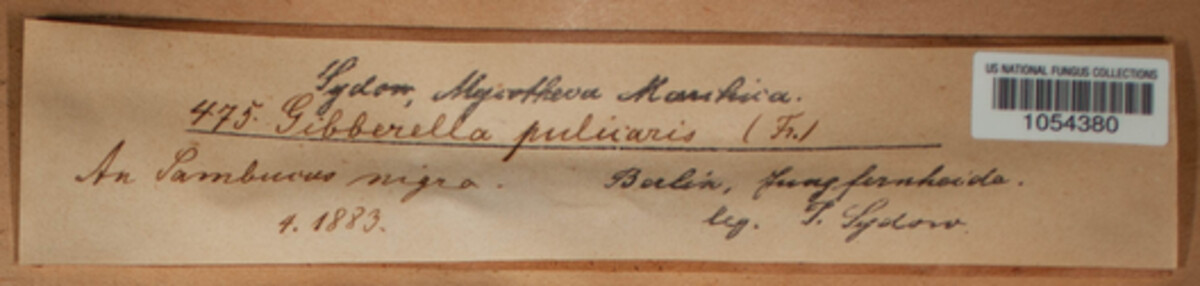 Sydow, Mycotheca Marchica.
475. Gibberella pulicaris (Fr.)
An Sambucus nigra.
4. 1883.
Berlin, Jungfernheide.
leg. P. Sydow.
US NATIONAL FUNGUS COLLECTIONS
1054380